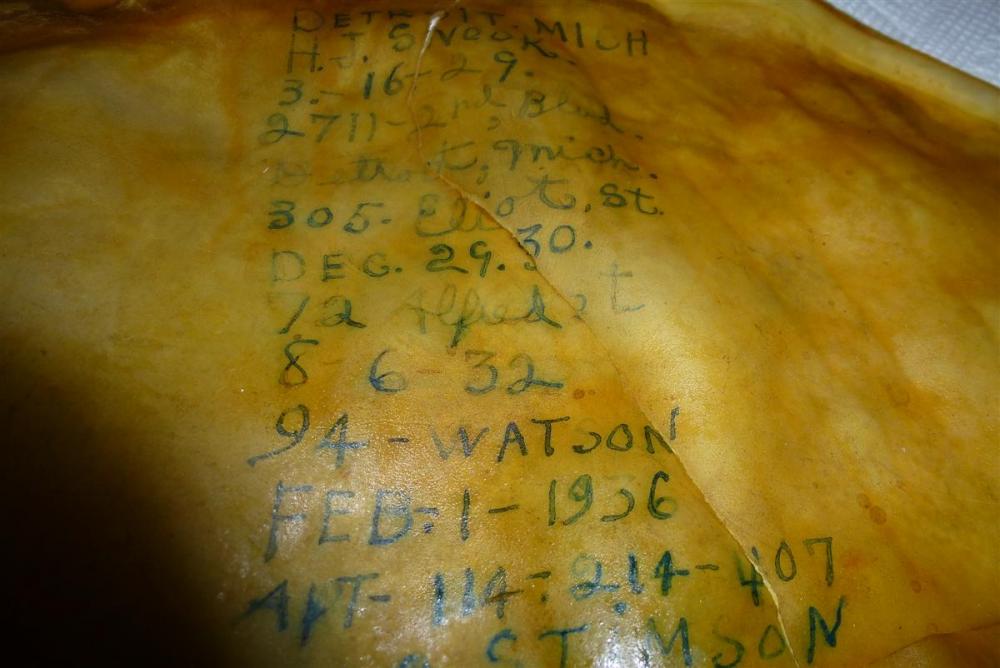 DETROIT. MICH
H. J. SVOOK.
3.-16-29.
2711-2nd, Blvd.
Detroit, Mich.
305. Eliot, St.
DEC. 29. 30.
72 Alfred st
8-6-32
94-WATSON
FEB-1-1936
APT- 114-214-407
STIMSON